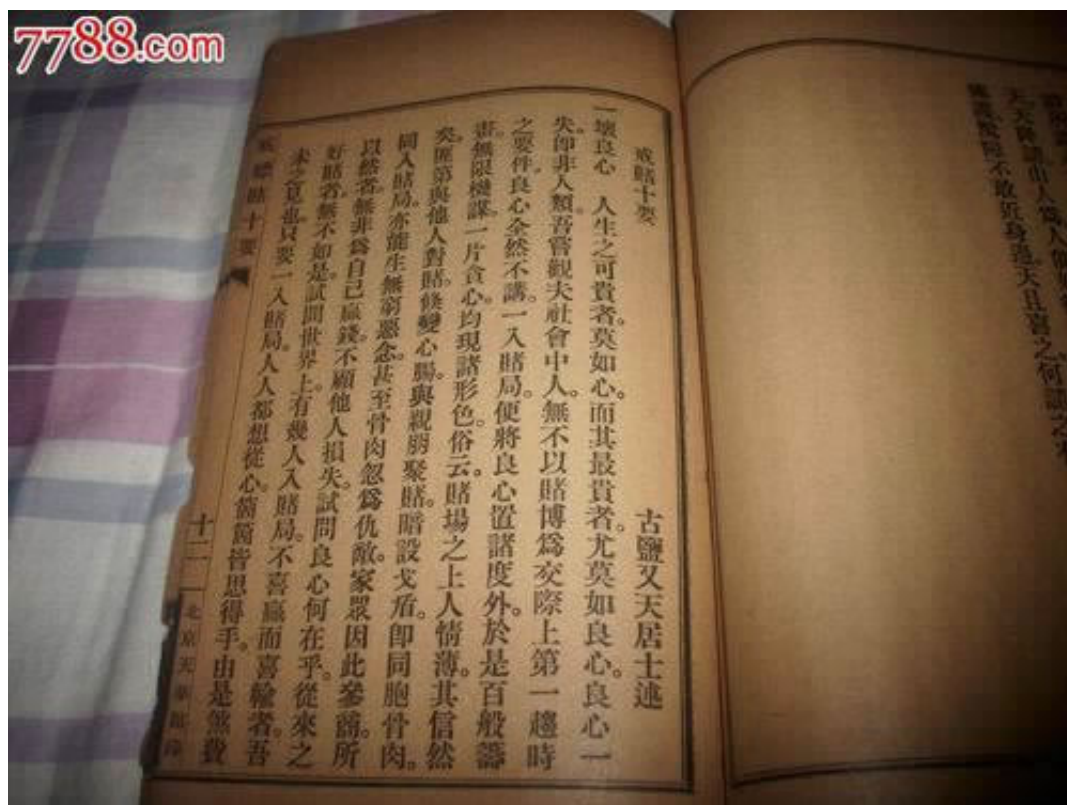 7788.com
天天降諸由人為人
不敢近身邊天且喜之何
戒賭十要
古鹽又天居士述
一壞良心 人生之可貴者。莫如心。而其最貴者。尤莫如良心。良心一
失。卽非人類。吾嘗觀夫社會中人。無不以賭博爲交際上第一趨時
之要件。良心全然不講。一入賭局。便將良心置諸度外。於是百般籌
畫。無限機謀。一片貪心。均現諸形色。俗云。賭場之上人情薄。其信然
矣。匪第與他人對賭。倐變心腸。與親朋聚賭。暗設戈矛。卽同胞骨肉。
同入賭局。亦能生無窮惡念。甚至骨肉忽爲仇敵。家眾因此參商。所
以然者。無非爲自己贏錢。不顧他人損失。試問良心何在乎。從來之
好賭者。無不如是。試問世界上。有幾人入賭局。不喜贏而喜輸者。吾
未之見也。只要一入賭局。人人都想從心。箇箇皆思得手。由是煞費
賭十要
十二
北京天華館